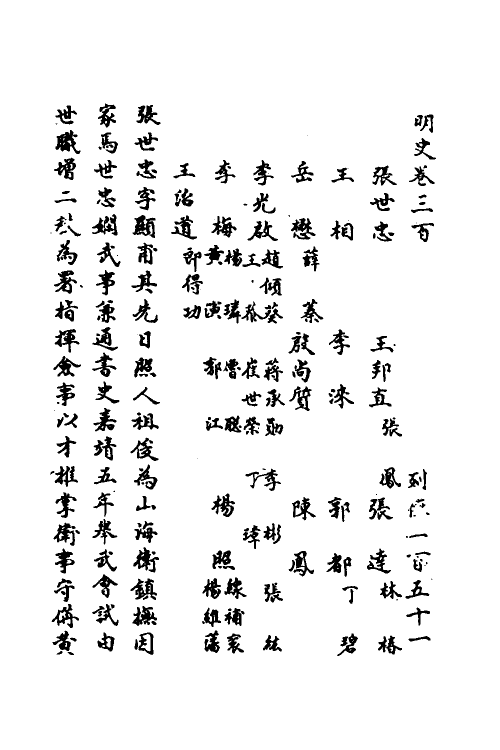 明史卷三百 列傳一百五十一
張世忠 王邦直 張鳳 張達 林椿
王相 李淶 郭都 丁碧
岳懋 薛蓁 殷尚質 陳鳳
李光啟 趙傾葵 蔣承勛 李彬 張鋐
王蔡 崔世榮 丁瑋
李梅 楊璘 曹聰 楊照 線補袞
黃演 郭江 楊維藩
王治道 郎得功
張世忠字顯甫其先日照人祖俊為山海衛鎮撫因
家焉世忠嫻武事兼通書史嘉靖五年舉武會試由
世職增二秩為署指揮僉事以才推掌衛事守備黃